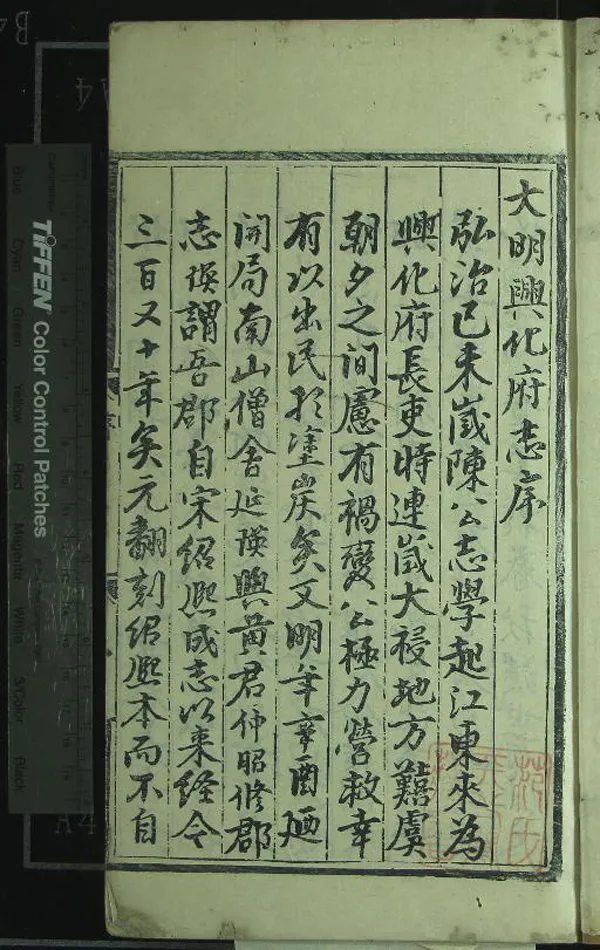 大明興化府志序
弘治己未歲陳公志學起江東來為
興化府長吏時連歲大祲地方囏虞
朝夕之間慮有禍變公極力營救幸
有以出民於塗炭矣又明年辛酉廼
開局南山僧舍延瑛與黃君仲昭修郡
志瑛謂吾郡自宋紹熙成志以來經今
三百又十年矣元翻刻紹熙本而不自
TIFFEN Color Control Patches
Blue
Cyan
Green
Yellow
Red
Magenta
White
3/Color
Black
A4